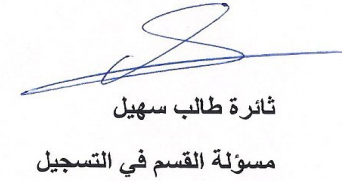 ثائرة طالب سهيل
مسؤلة القسم في التسجيل